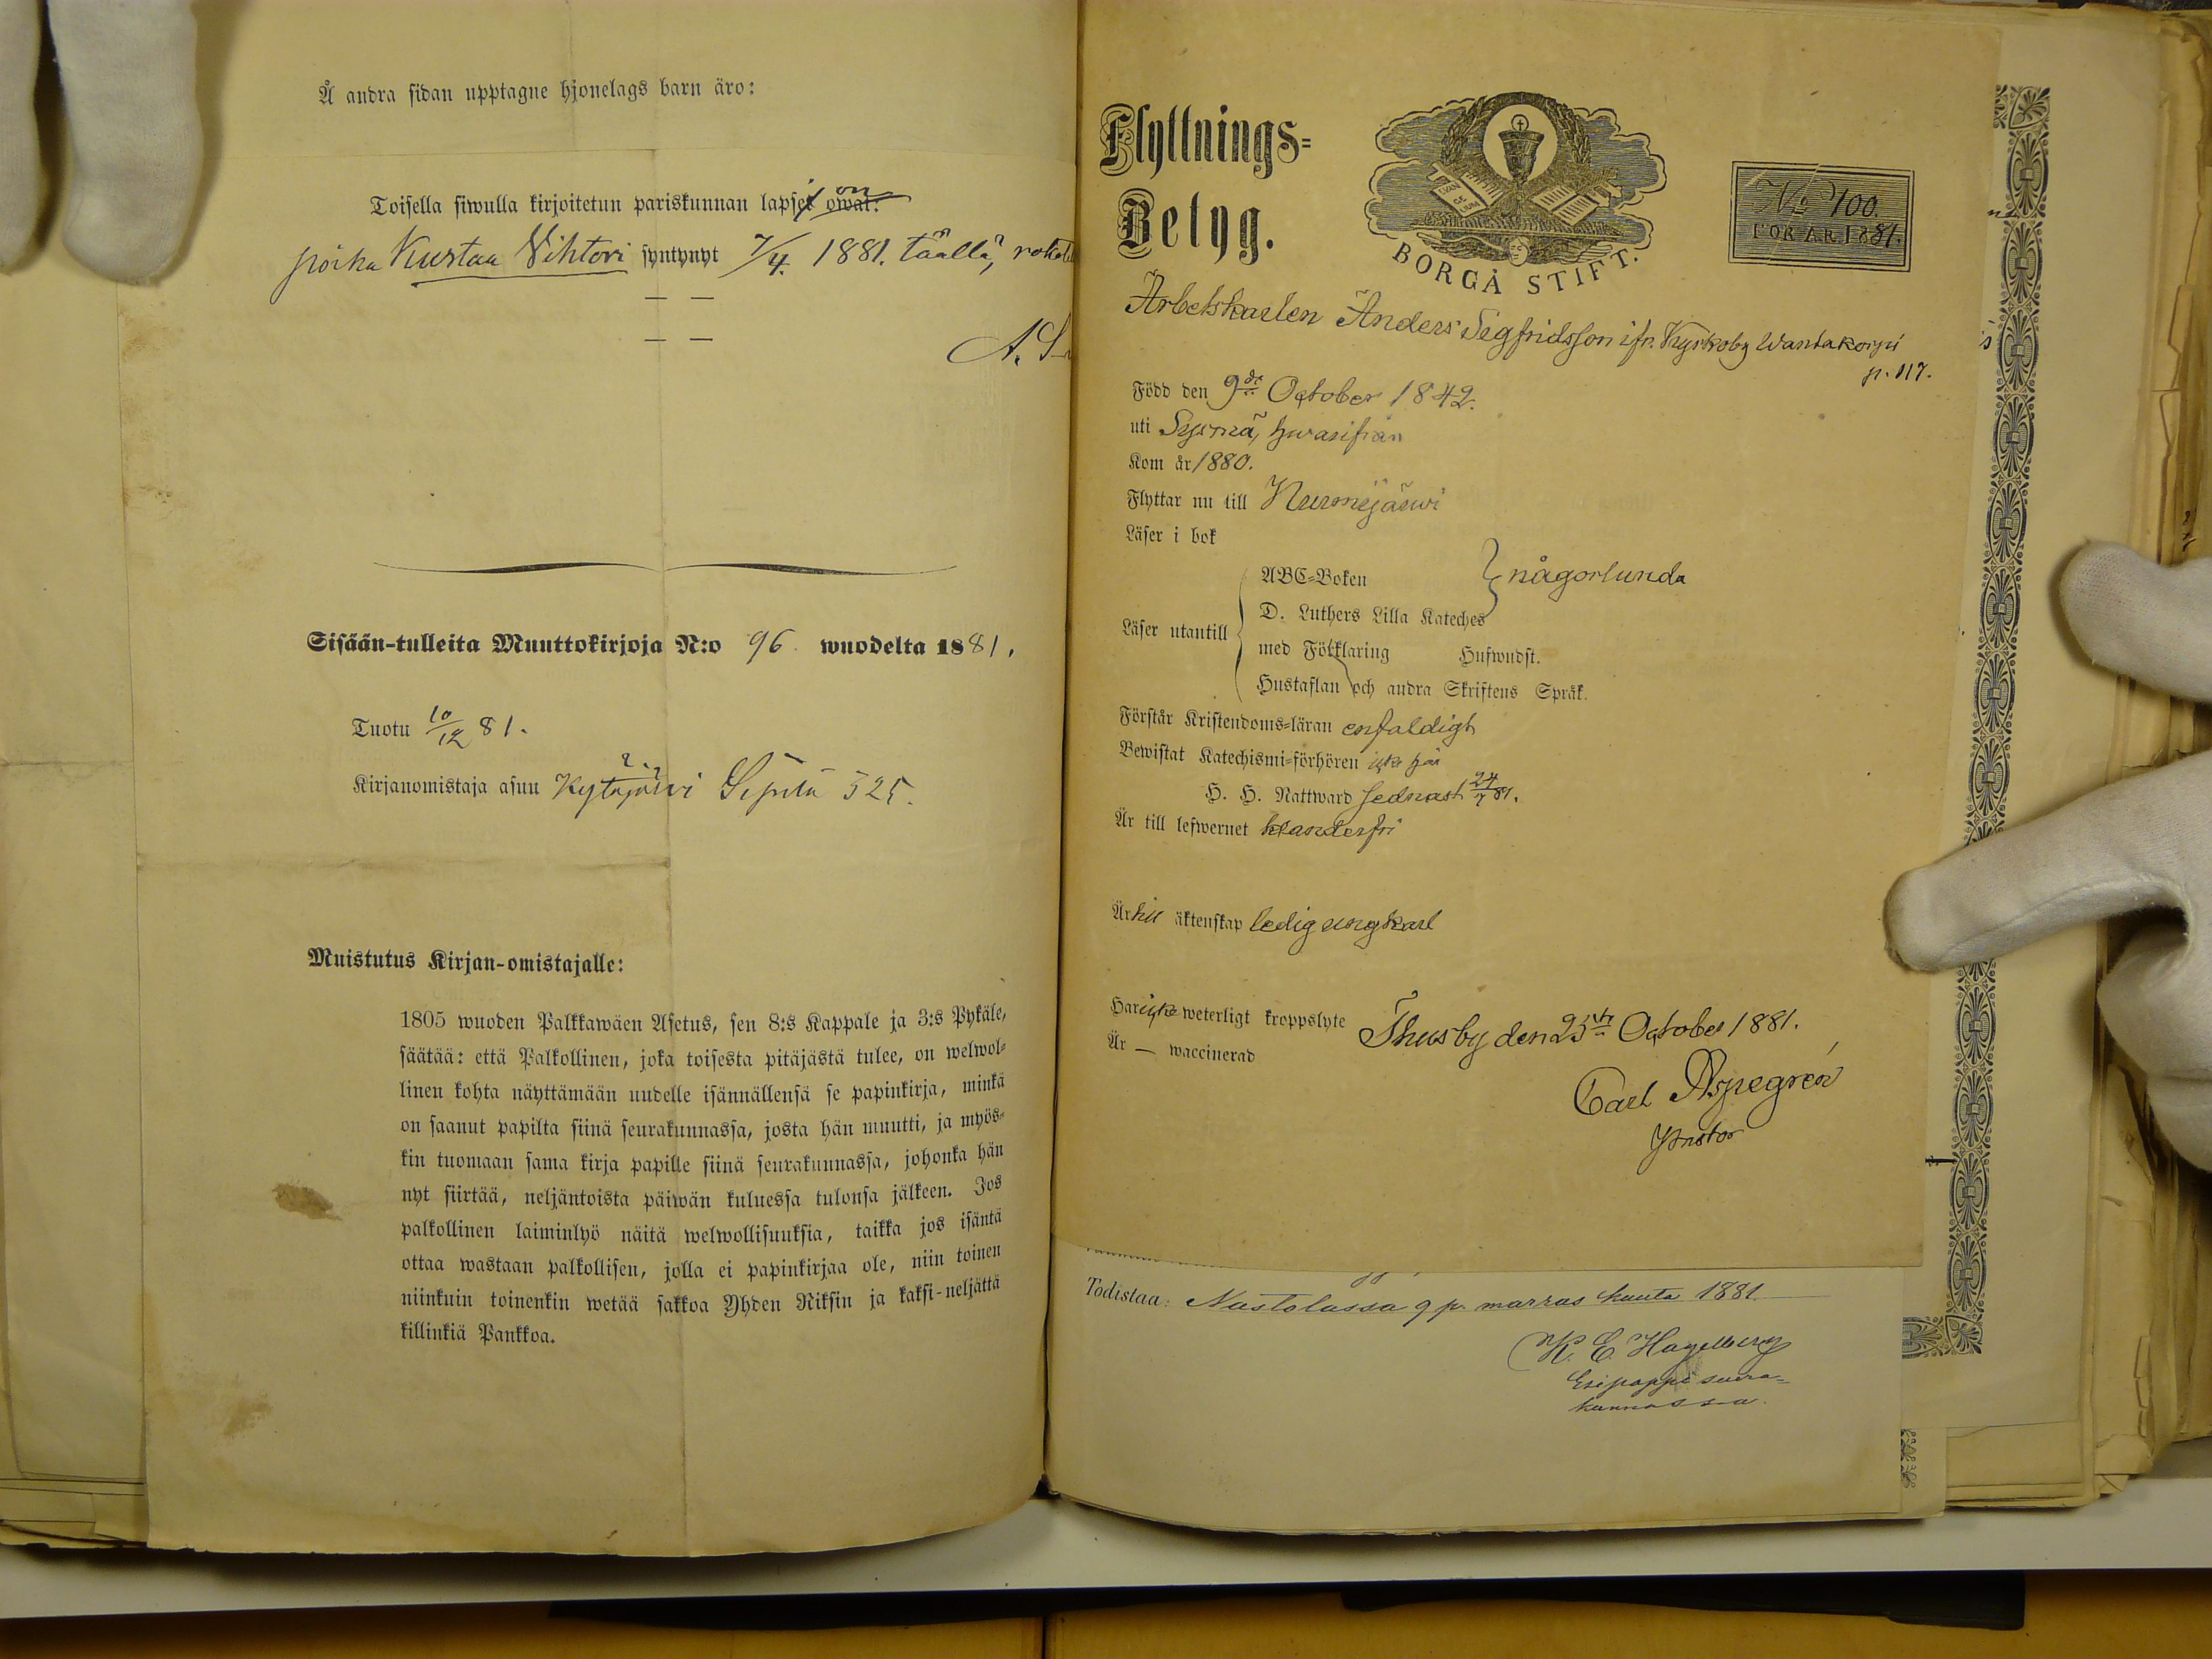 Å andra sidan upptagne hjonelags barn äro:
Toisella siwulla kirjoitetun pariskunnan lapset owat: on
poika Kustaa Vihtori syntynyt 7/4. 1881. täällä,
— —
— —
A. S
Sisään-tulleita Muuttokirjoja N:o 96. wuodelta 1881.
Tuotu 10/12 81.
Kirjanomistaja asuu Kytäjärvi 325.
Muistutus Kirjan-omistajalle:
1805 wuoden Palkkawäen Asetus, sen 8:s Kappale ja 3:s Pykäle,
säätää: että Palkollinen, joka toisesta pitäjästä tulee, on welwol-
linen kohta näyttämään uudelle isännällensä se papinkirja, minkä
on saanut papilta siinä seurakunnassa, josta hän muutti, ja myös-
kin tuomaan sama kirja papille siinä seurakunnassa, johonka hän
nyt siirtää, neljäntoista päiwän kuluessa tulonsa jälkeen. Jos
palkollinen laiminlyö näitä welwollisuuksia, taikka jos isäntä
ottaa wastaan palkollisen, jolla ei papinkirjaa ole, niin toinen
niinkuin toinenkin wetää sakkoa Yhden Riksin ja kaksi-neljättä
killinkiä Pankkoa.
Flyttnings-
Betyg.
EVAN
GE
LIUM
BORGÅ STIFT.
No 100.
FÖR ÅR 1881.
Arbetskarlen Anders Segfridsson ifr. Kyrkoby Wantakorpi
p. 117.
Född den 9de October 1842.
uti Sysmä, hwarifrån
Kom år 1880.
Flyttar nu till Nurmijärwi
Läser i bok
Läser utantill
ABC-Boken
D. Luthers Lilla Kateches
någorlunda
med Förklaring Hufwudst.
Hustaflan och andra Skriftens Språk.
Förstår Kristendoms-läran enfaldigt
Bewistat Katechismi-förhören icke här
H. H. Nattward sednast 24/7 81.
Är till lefwernet klanderfri
Är till äktenskap ledig ungkarl
Har icke weterligt kroppslyte
Är — waccinerad
Thusby den 25te October 1881.
Carl Aspegren
Pastor
Todistaa: Nastolassa 9 p. marras kuuta 1881.
K. E. Hagelberg
Esipappi seura-
kunnassa.